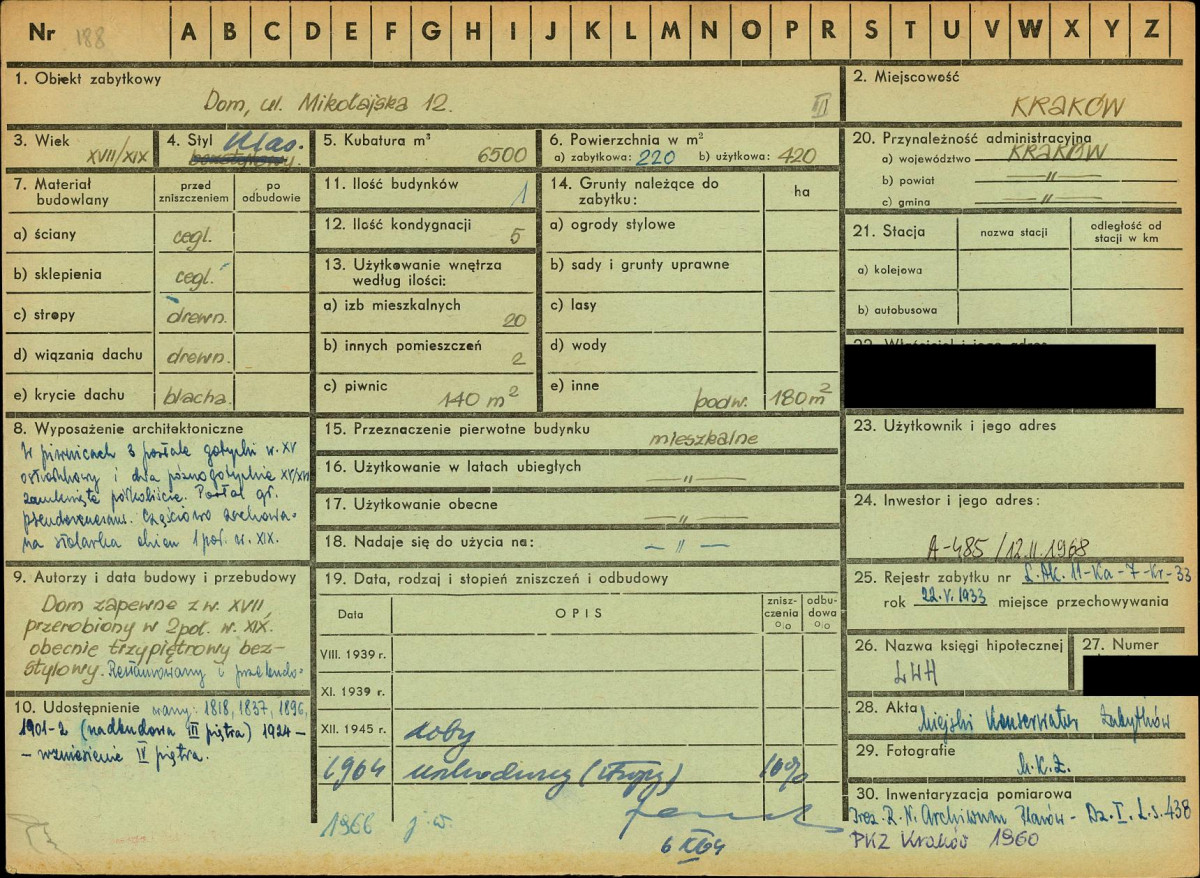 Nr 188 A B C D E F G H I J K L M N O P R S T U V W X Y Z
1. Obiekt zabytkowy
Dom, ul. Mikołajska 12. III
2. Miejscowość
KRAKÓW
3. Wiek
XVII/XIX
4. Styl Klas.
bezstylowy.
5. Kubatura m³
6500
6. Powierzchnia w m²
a) zabytkowa: 220 b) użytkowa: 420
20. Przynależność administracyjna
a) województwo KRAKÓW
b) powiat — " —
c) gmina — " —
7. Materiał budowlany
przed zniszczeniem
po odbudowie
a) ściany cegl.
b) sklepienia cegl.
c) stropy drewn.
d) wiązania dachu drewn.
e) krycie dachu blacha.
11. Ilość budynków
1
12. Ilość kondygnacji
5
13. Użytkowanie wnętrza
według ilości:
a) izb mieszkalnych
20
b) innych pomieszczeń
2
c) piwnic
140 m²
14. Grunty należące do
zabytku:
ha
a) ogrody stylowe
b) sady i grunty uprawne
c) lasy
d) wody
e) inne
podw. 180 m²
21. Stacja
nazwa stacji
odległość od
stacji w km
a) kolejowa
b) autobusowa
22. Właściciel i jego adres
23. Użytkownik i jego adres
24. Inwestor i jego adres:
A-485/12.II.1968
8. Wyposażenie architektoniczne
W piwnicach 3 portale gotyckie w. XV
ostrołukowy i dwa późnogotyckie XV/XVI
zamknięte półkoliście. Portal gł.
pseudorenesans. Częściowo zachowa-
na stolarka okien 1 poł. w. XIX.
15. Przeznaczenie pierwotne budynku
mieszkalne
16. Użytkowanie w latach ubiegłych
— " —
17. Użytkowanie obecne
— " —
18. Nadaje się do użycia na:
— " —
9. Autorzy i data budowy i przebudowy
Dom zapewne z w. XVII,
przerobiony w 2 poł. w. XIX.
obecnie trzypiętrowy bez-
stylowy. Restaurowany i przebudo-
10. Udostępnienie wany: 1818, 1837, 1896,
1901-2 (nadbudowa III piętra) 1924 -
- wzniesienie IV piętra.
19. Data, rodzaj i stopień zniszczeń i odbudowy
Data
OPIS
znisz-
czenia
%
odbu-
dowa
%
VIII. 1939 r.
XI. 1939 r.
XII. 1945 r. dobry
1964 uszkodzony (stropy) 10%
1966 j. w.
6 XI 64
25. Rejestr zabytku nr L. Ak. 11-Ka-7-Kr-33
rok 22.V.1933 miejsce przechowywania
26. Nazwa księgi hipotecznej
LWH
27. Numer
28. Akta Miejski Konserwator Zabytków
29. Fotografie
M.K.Z.
30. Inwentaryzacja pomiarowa
Prez. R. N. Archiwum Planów - Dz. I. L.s. 438
PKZ Kraków 1960